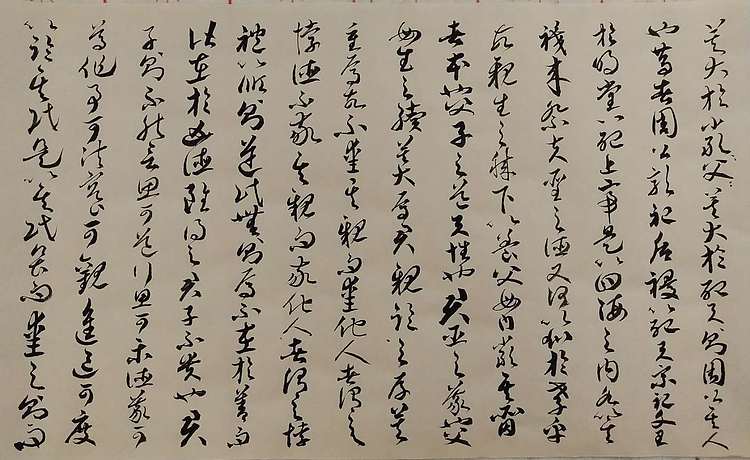 莫大於嚴父莫大於配天則周公其人
也昔者周公郊祀后稷以配天宗祀文王
於明堂以配上帝是以四海之內各以其
職來祭夫聖之德又何以加於孝乎
故親生之膝下以養父母日嚴其因
者本也父子之道天性也君臣之義父
母生之續莫大焉君親臨之厚莫
重焉故不愛其親而愛他人者謂之
悖德不敬其親而敬他人者謂之悖
禮以順則逆民無則焉不在於善而
皆在於凶德雖得之君子不貴也君
子則不然言思可道行思可樂德義可
尊作事可法容止可觀進退可度
以臨其民是以其民畏而愛之則而